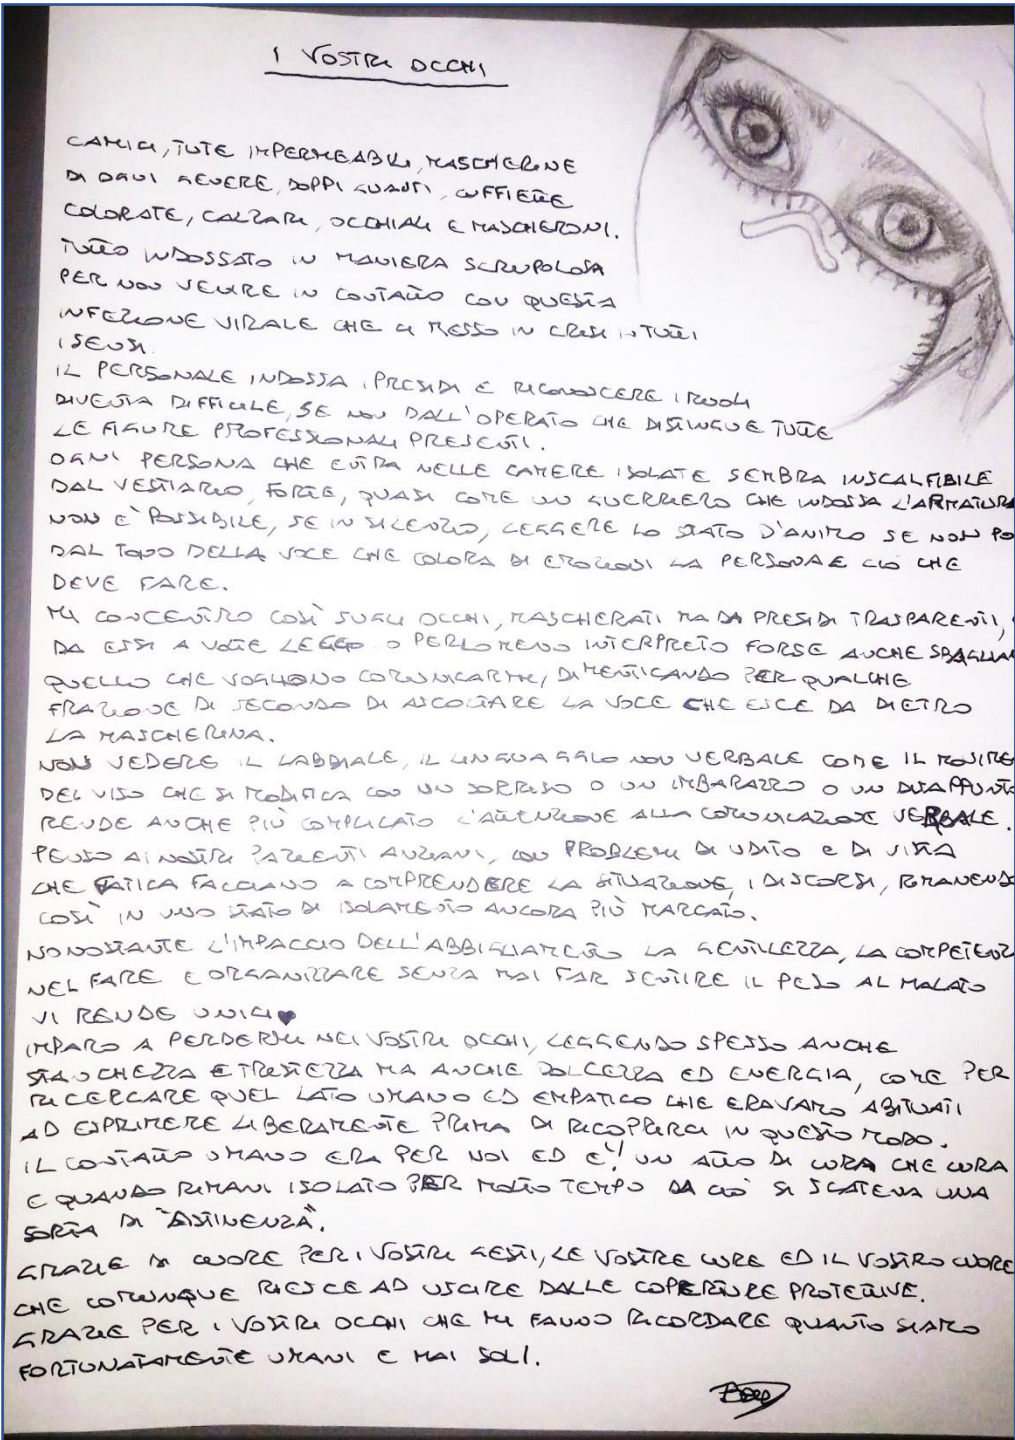 I VOSTRI OCCHI
CAMICI, TUTE IMPERMEABILI, MASCHERINE
DI OGNI GENERE, DOPPI GUANTI, CUFFIETTE
COLORATE, CALZARI, OCCHIALI E MASCHERONI.
TUTTO INDOSSATO IN MANIERA SCRUPOLOSA
PER NON VENIRE IN CONTATTO CON QUESTA
INFEZIONE VIRALE CHE CI MESSO IN CRISI IN TUTTI
I SENSI.
IL PERSONALE INDOSSA I PRESIDI E RICONOSCERE I RUOLI
DIVENTA DIFFICILE, SE NON DALL'OPERATO CHE DISTINGUE TUTTE
LE FIGURE PROFESSIONALI PRESENTI.
OGNI PERSONA CHE ENTRA NELLE CAMERE ISOLATE SEMBRA INSCALFIBILE
DAL VESTIARIO, FORTE, QUASI COME UN GUERRIERO CHE INDOSSA L'ARMATURA
NON E' POSSIBILE, SE IN SILENZIO, LEGGERE LO STATO D'ANIMO SE NON PO
DAL TONO DELLA VOCE CHE COLORA DI EMOZIONI LA PERSONA E CIÒ CHE
DEVE FARE.
MI CONCENTRO COSÌ SUGLI OCCHI, MASCHERATI MA DA PRESIDI TRASPARENTI,
DA ESSI A VOLTE LEGGO O PERLOMENO INTERPRETO FORSE ANCHE SBAGLIAN
QUELLO CHE VOGLIONO COMUNICARMI, DIMENTICANDO PER QUALCHE
FRAZIONE DI SECONDO DI ASCOLTARE LA VOCE CHE ESCE DA DIETRO
LA MASCHERINA.
NON VEDERE IL LABBIALE, IL LINGUAGGIO NON VERBALE COME IL
DEL VISO CHE SI MODIFICA CON UN SORRISO O UN IMBARAZZO O UN DISAPPUNTO
RENDE ANCHE PIÙ COMPLICATO L'ATTENZIONE ALLA COMUNICAZIONE VERBALE.
PENSO AI NOSTRI PAZIENTI ANZIANI, CON PROBLEMI DI UDITO E DI VISTA
CHE FATICA FACCIANO A COMPRENDERE LA SITUAZIONE, I DISCORSI, RIMANENDO
COSÌ IN UNO STATO DI ISOLAMENTO ANCORA PIÙ MARCATO.
NONOSTANTE L'IMPACCIO DELL'ABBIGLIAMENTO LA GENTILEZZA, LA COMPETENZ
NEL FARE E ORGANIZZARE SENZA MAI FAR SENTIRE IL PESO AL MALATO
VI RENDE UNICI
IMPARO A PERDERMI NEI VOSTRI OCCHI, LEGGENDO SPESSO ANCHE
STANCHEZZA E TRISTEZZA MA ANCHE DOLCEZZA ED ENERGIA, COME PER
RICERCARE QUEL LATO UMANO ED EMPATICO CHE ERAVAMO ABITUATI
AD ESPRIMERE LIBERAMENTE PRIMA DI RICOPRIRCI IN QUESTO MODO.
IL CONTATTO UMANO ERA PER NOI ED E'! UN ATTO DI CURA CHE CURA
E QUANDO RIMANI ISOLATO PER MOLTO TEMPO DA CIÒ SI SCATENA UNA
SORTA DI "ASTINENZA".
GRAZIE DI CUORE PER I VOSTRI GESTI, LE VOSTRE CURE ED IL VOSTRO CUORE
CHE COMUNQUE RIESCE AD USCIRE DALLE COPERTURE PROTETTIVE.
GRAZIE PER I VOSTRI OCCHI CHE MI FANNO RICORDARE QUANTO SIAMO
FORTUNATAMENTE UMANI E MAI SOLI.